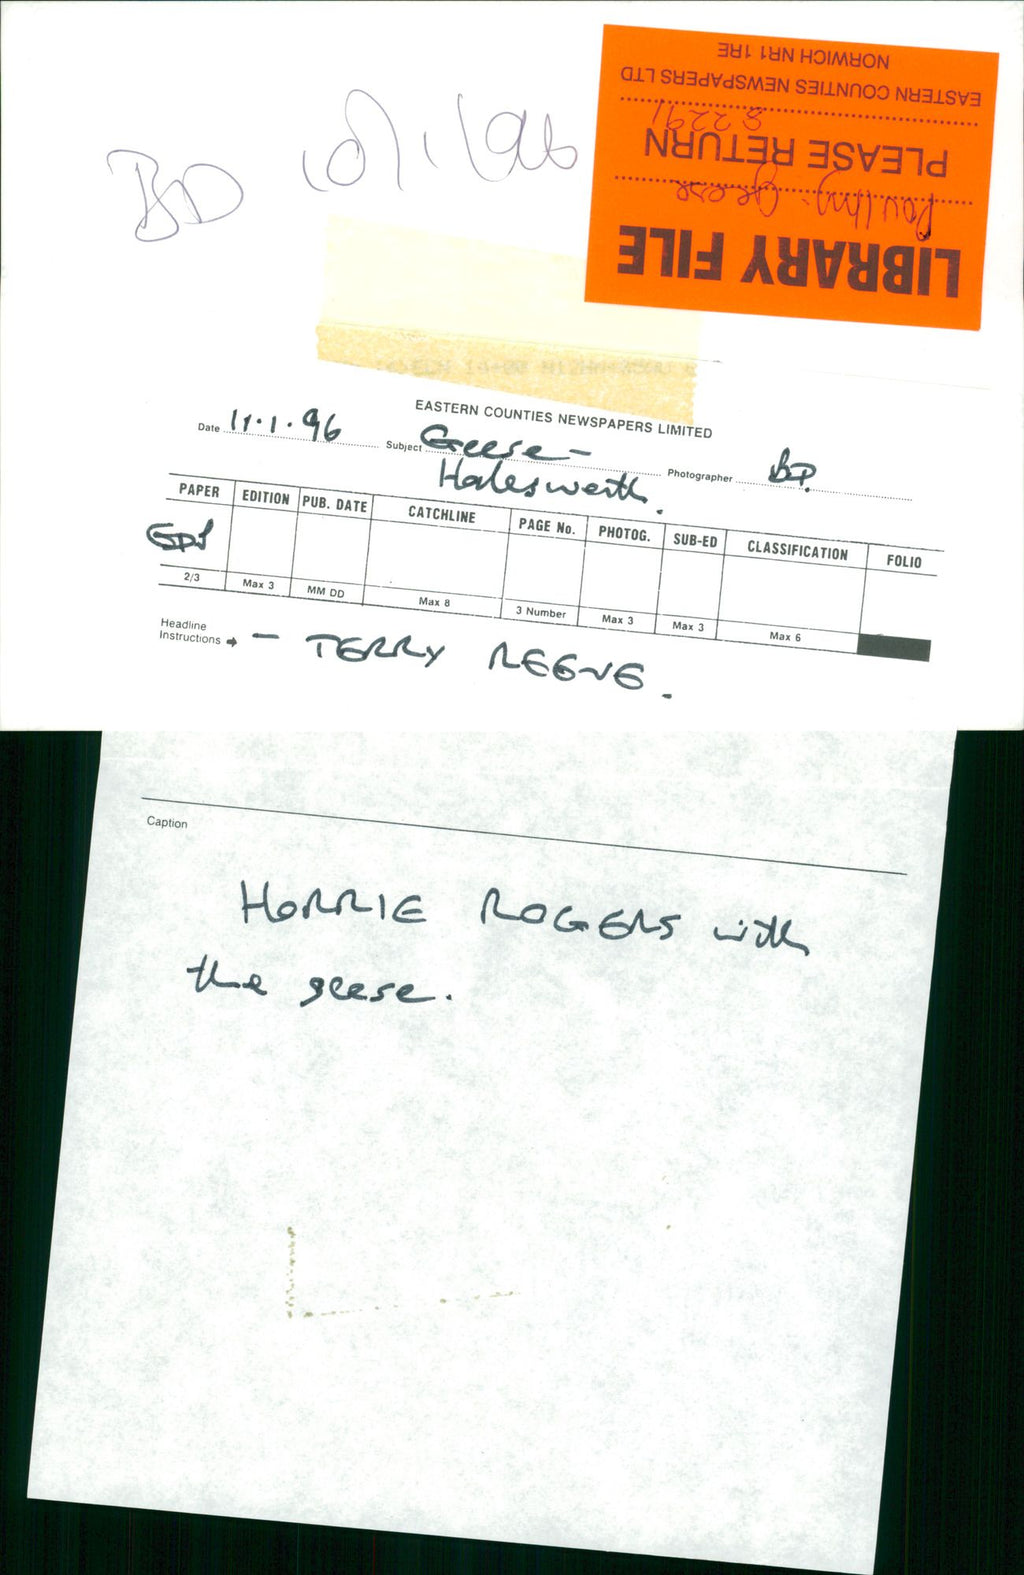 BD 10/1/96
LIBRARY FILE
Poultry - Geese
PLEASE RETURN
82291
EASTERN COUNTIES NEWSPAPERS LTD
NORWICH NR1 1RE
EASTERN COUNTIES NEWSPAPERS LIMITED
Date 11.1.96 Subject Geese - Photographer
Halesworth.
PAPER EDITION PUB. DATE CATCHLINE PAGE No. PHOTOG. SUB-ED CLASSIFICATION FOLIO
EDP
2/3 Max 3 MM DD Max 8 3 Number Max 3 Max 3 Max 6
Headline
Instructions → - TERRY REEVE.
Caption
HORRIE ROGERS with
the geese.